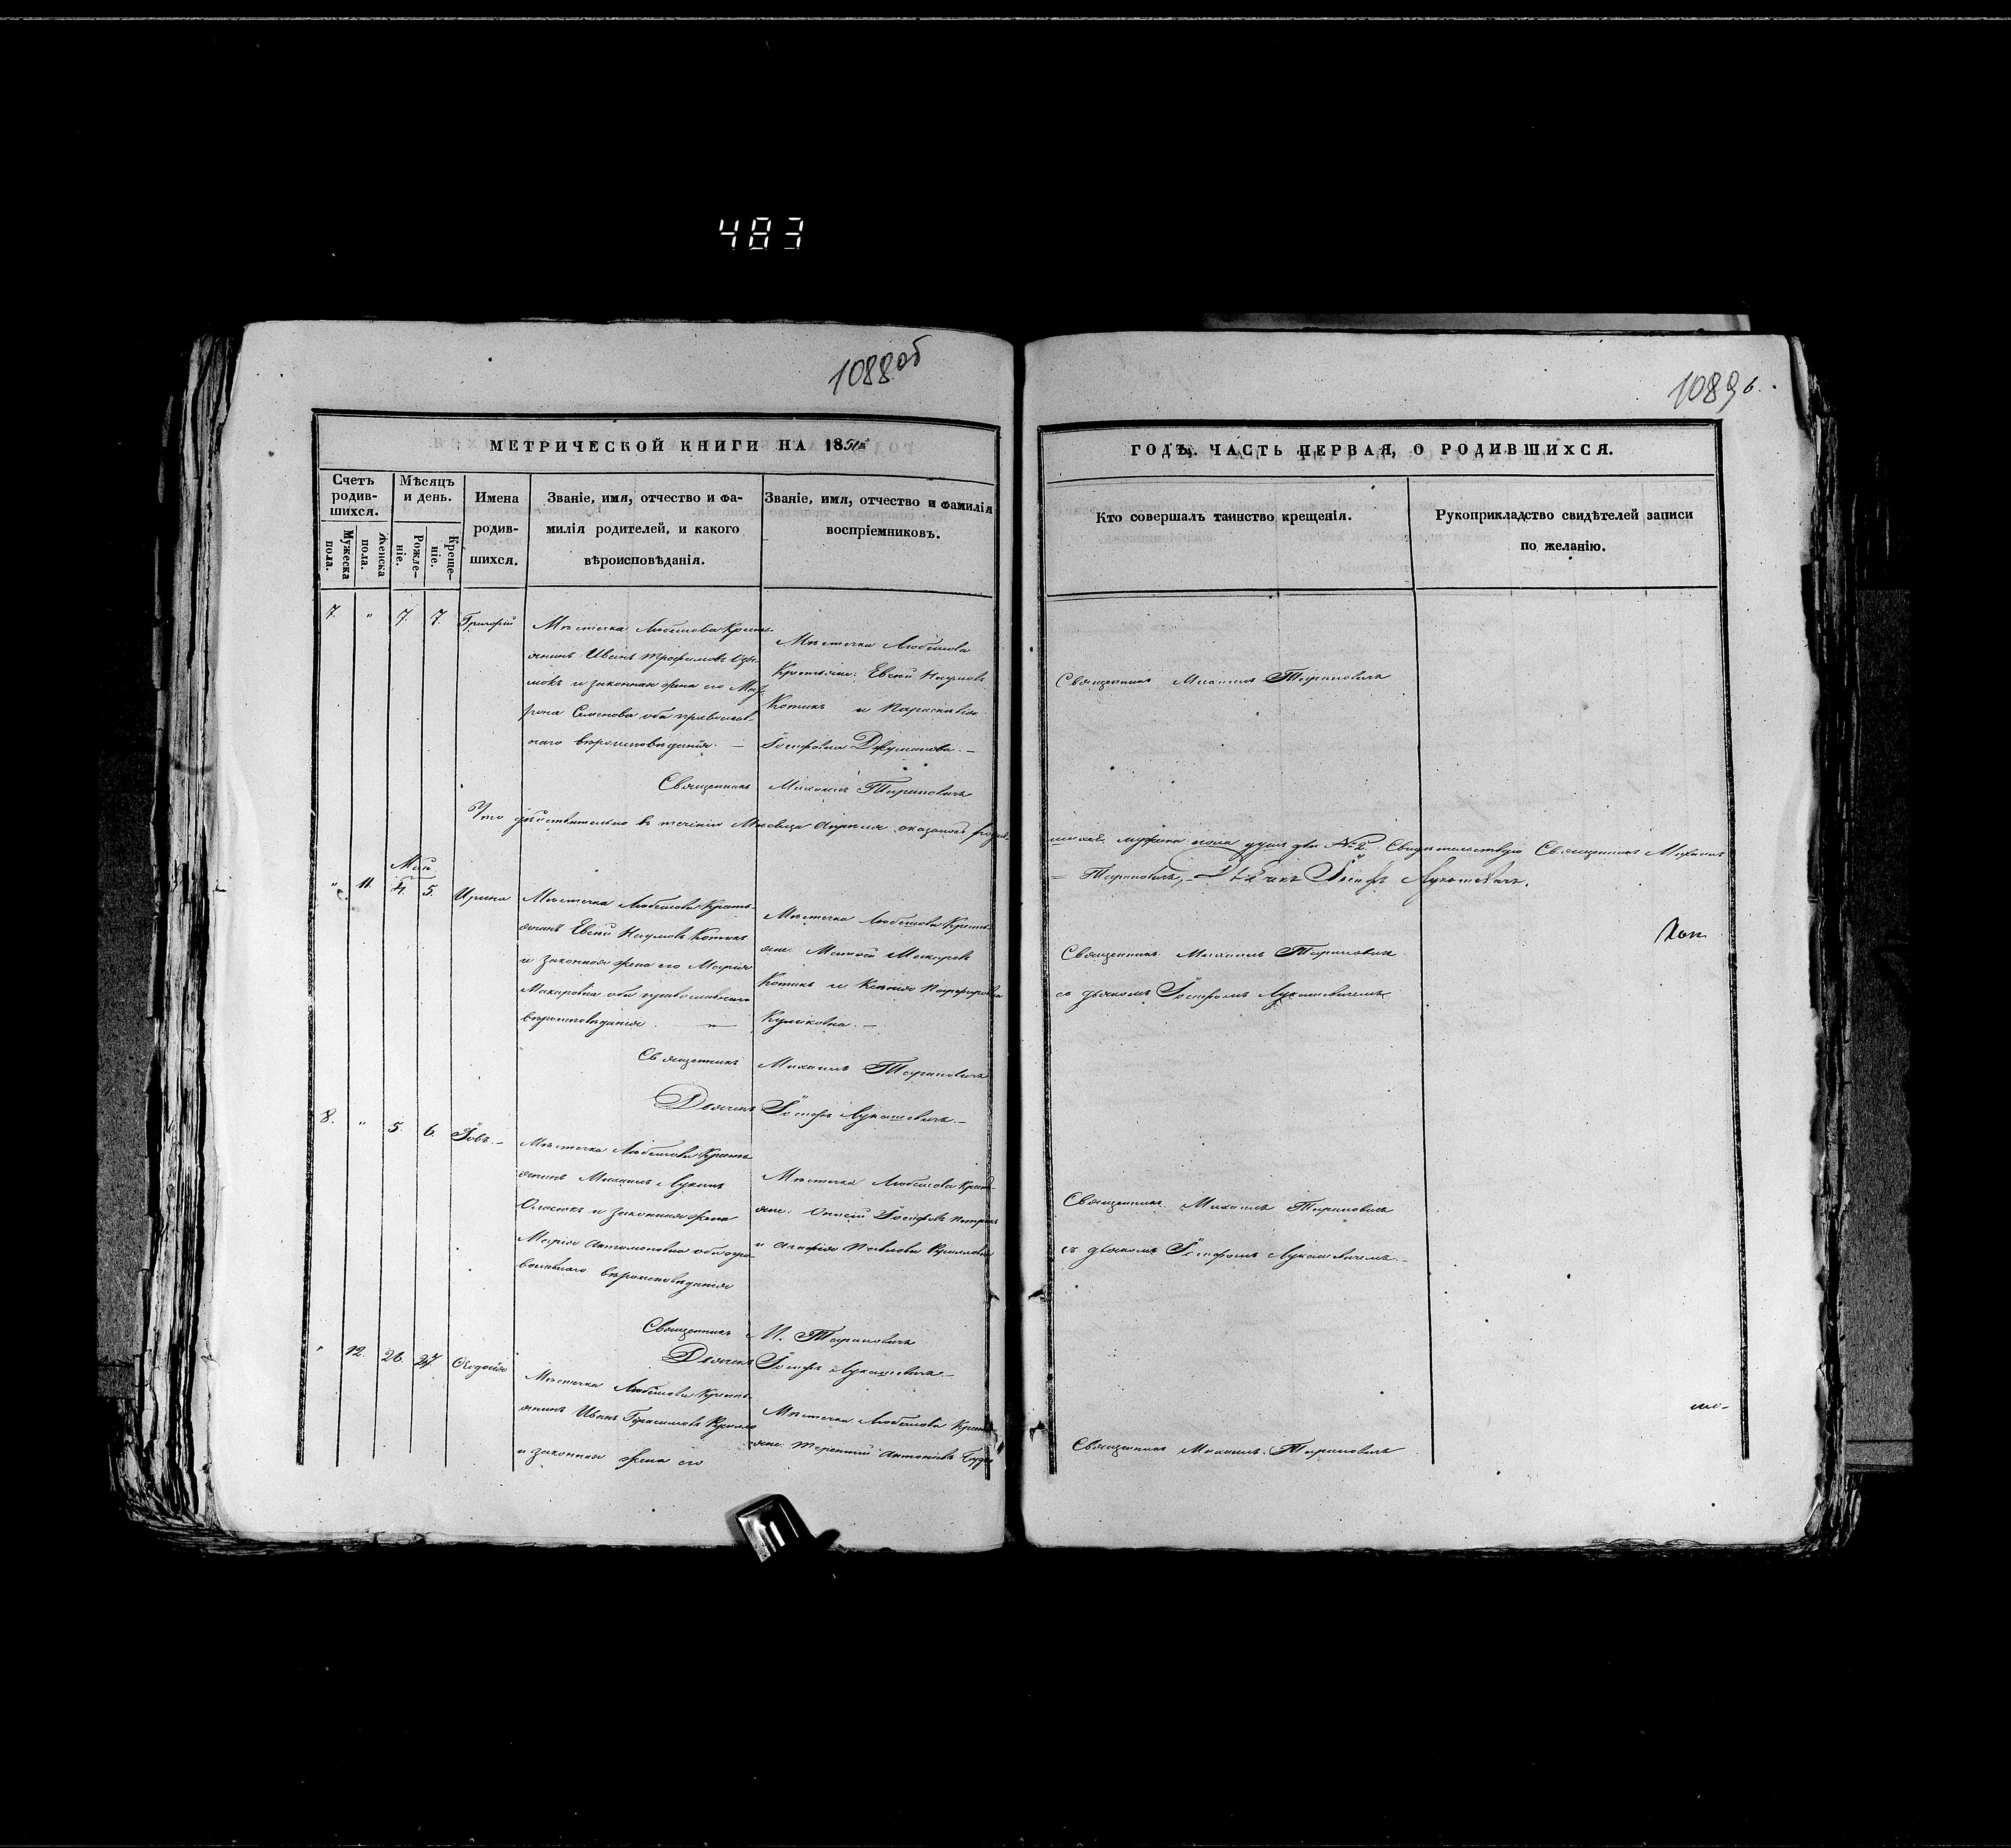 483
1088об
10896.
МЕТРИЧЕСКОЙ КНИГИ НА 185
ГОДЪ, ЧАСТЬ ПЕРВАЯ, О РОДИВШИХСЯ.
Счетъ родив-шихся.
Мужеска пола.
Женска пола.
Мѣсяцъ и день.
Рожде-ніе.
Креще-ніе.
Имена
родив-
шихся.
Званіе, имя, отчество и фа-
милія родителей, и какого
вѣроисповѣданія.
Званіе, имя, отчество и фамилія
воспріемниковъ.
Кто совершалъ таинство крещенія.
Рукоприкладство свидѣтелей записи
по желанію.
7. " 7. 7. Григорій
Мѣстечка Любешова Кресть-
янинъ Иванъ Трофимовъ
и законная жена его Мат-
рона оба православ-
наго вѣроисповѣданія. —
Мѣстечка Любешова
Крестьяне: Евсій Наумовъ
Котикъ и Параскевія
Іосифова
Священникъ Михаилъ Тарановичъ
Священникъ Михаилъ Тарановичъ
Что дѣйствительно въ теченіи Мѣсяца Апрѣля оказалось родив-
шихся мужеска пола душъ двѣ № 2. Свидѣтельствую Священникъ Михаилъ
Тарановичъ, Дьячекъ Іосифъ Лукашевичъ.
Май
" 11. 4. 5. Ирина
Мѣстечка Любешова Кресть-
янинъ Евсій Наумовъ Котикъ
и законная жена его Марія
Макарова оба православнаго
вѣроисповѣданія. —
Мѣстечка Любешова Кресть-
яне: Матвій Макаровъ
Котикъ и Ксенія
Куликовна. —
Священникъ Михаилъ Тарановичъ
съ дьякомъ Іосифомъ Лукашевичемъ
Священникъ Михаилъ Тарановичъ
Дьячекъ Іосифъ Лукашевичъ. —
8. " 5. 6. Іовъ. —
Мѣстечка Любешова Кресть-
янинъ Михаилъ Лукинъ
и законная жена
Марія Антоновна оба пра-
вославнаго вѣроисповѣданія
Мѣстечка Любешова Кресть-
яне: Іосифовъ
и Агафія Павлова
Священникъ Михаилъ Тарановичъ
съ дьякомъ Іосифомъ Лукашевичемъ. —
Священникъ М. Тарановичъ
Дьячекъ Іосифъ Лукашевичъ. —
" 12. 26. 27. Ѳеодосія
Мѣстечка Любешова Кресть-
янинъ Иванъ Герасимовъ
и законная жена его
Мѣстечка Любешова Кресть-
яне: Терентій Антоніевъ
Священникъ Михаилъ Тарановичъ